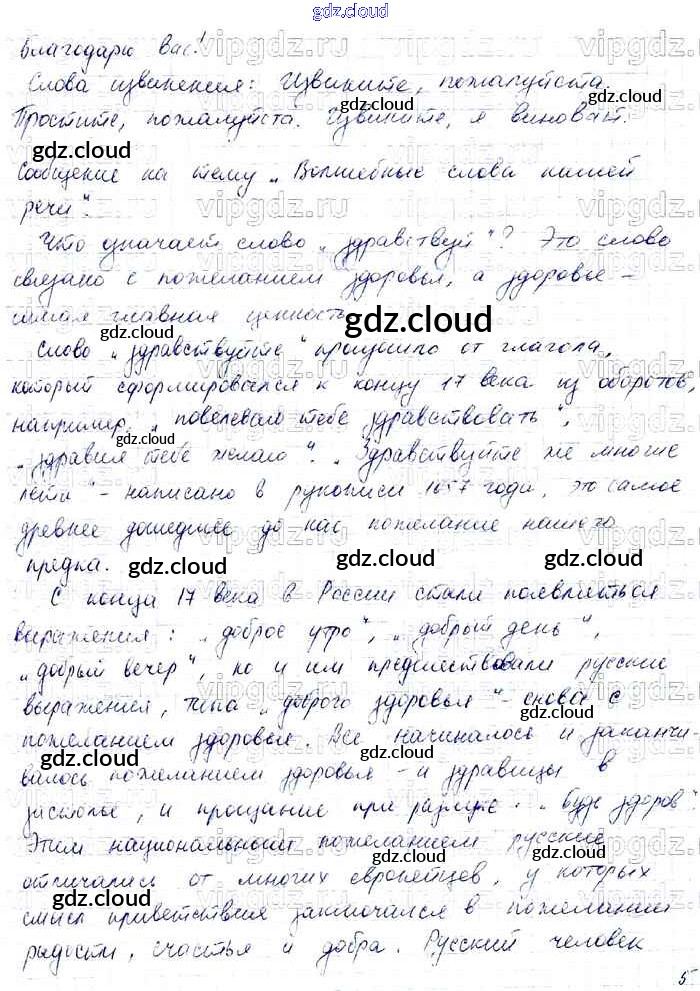 gdz.cloud
Благодарю вас!
Слова извинения: Извините, пожалуйста.
Простите, пожалуйста. Извините, я виноват.
Сообщение на тему „Волшебные слова нашей
речи".
Что означает слово „здравствуй"? Это слово
связано с пожеланием здоровья, а здоровье –
самая главная ценность.
Слово „здравствуйте" произошло от глагола,
который сформировался к концу 17 века из оборотов,
например, „повелеваю тебе здравствовать",
„здравия тебе желаю". „Здравствуйте же многие
лета" - написано в рукописи 1057 года, это самое
древнее дошедшее до нас пожелание нашего
предка.
С конца 17 века в России стали появляться
выражения: „доброе утро", „добрый день",
„добрый вечер", но и им предшествовали русские
выражения, типа „доброго здоровья" - снова с
пожеланием здоровья. Все начиналось и заканчи-
валось пожеланием здоровья – и здравицы в
застолье, и прощание при разлуке: „Будь здоров"
Этим национальным пожеланием русские
отличались от многих европейцев, у которых
смысл приветствия заключался в пожелании
радости, счастья и добра. Русский человек
5